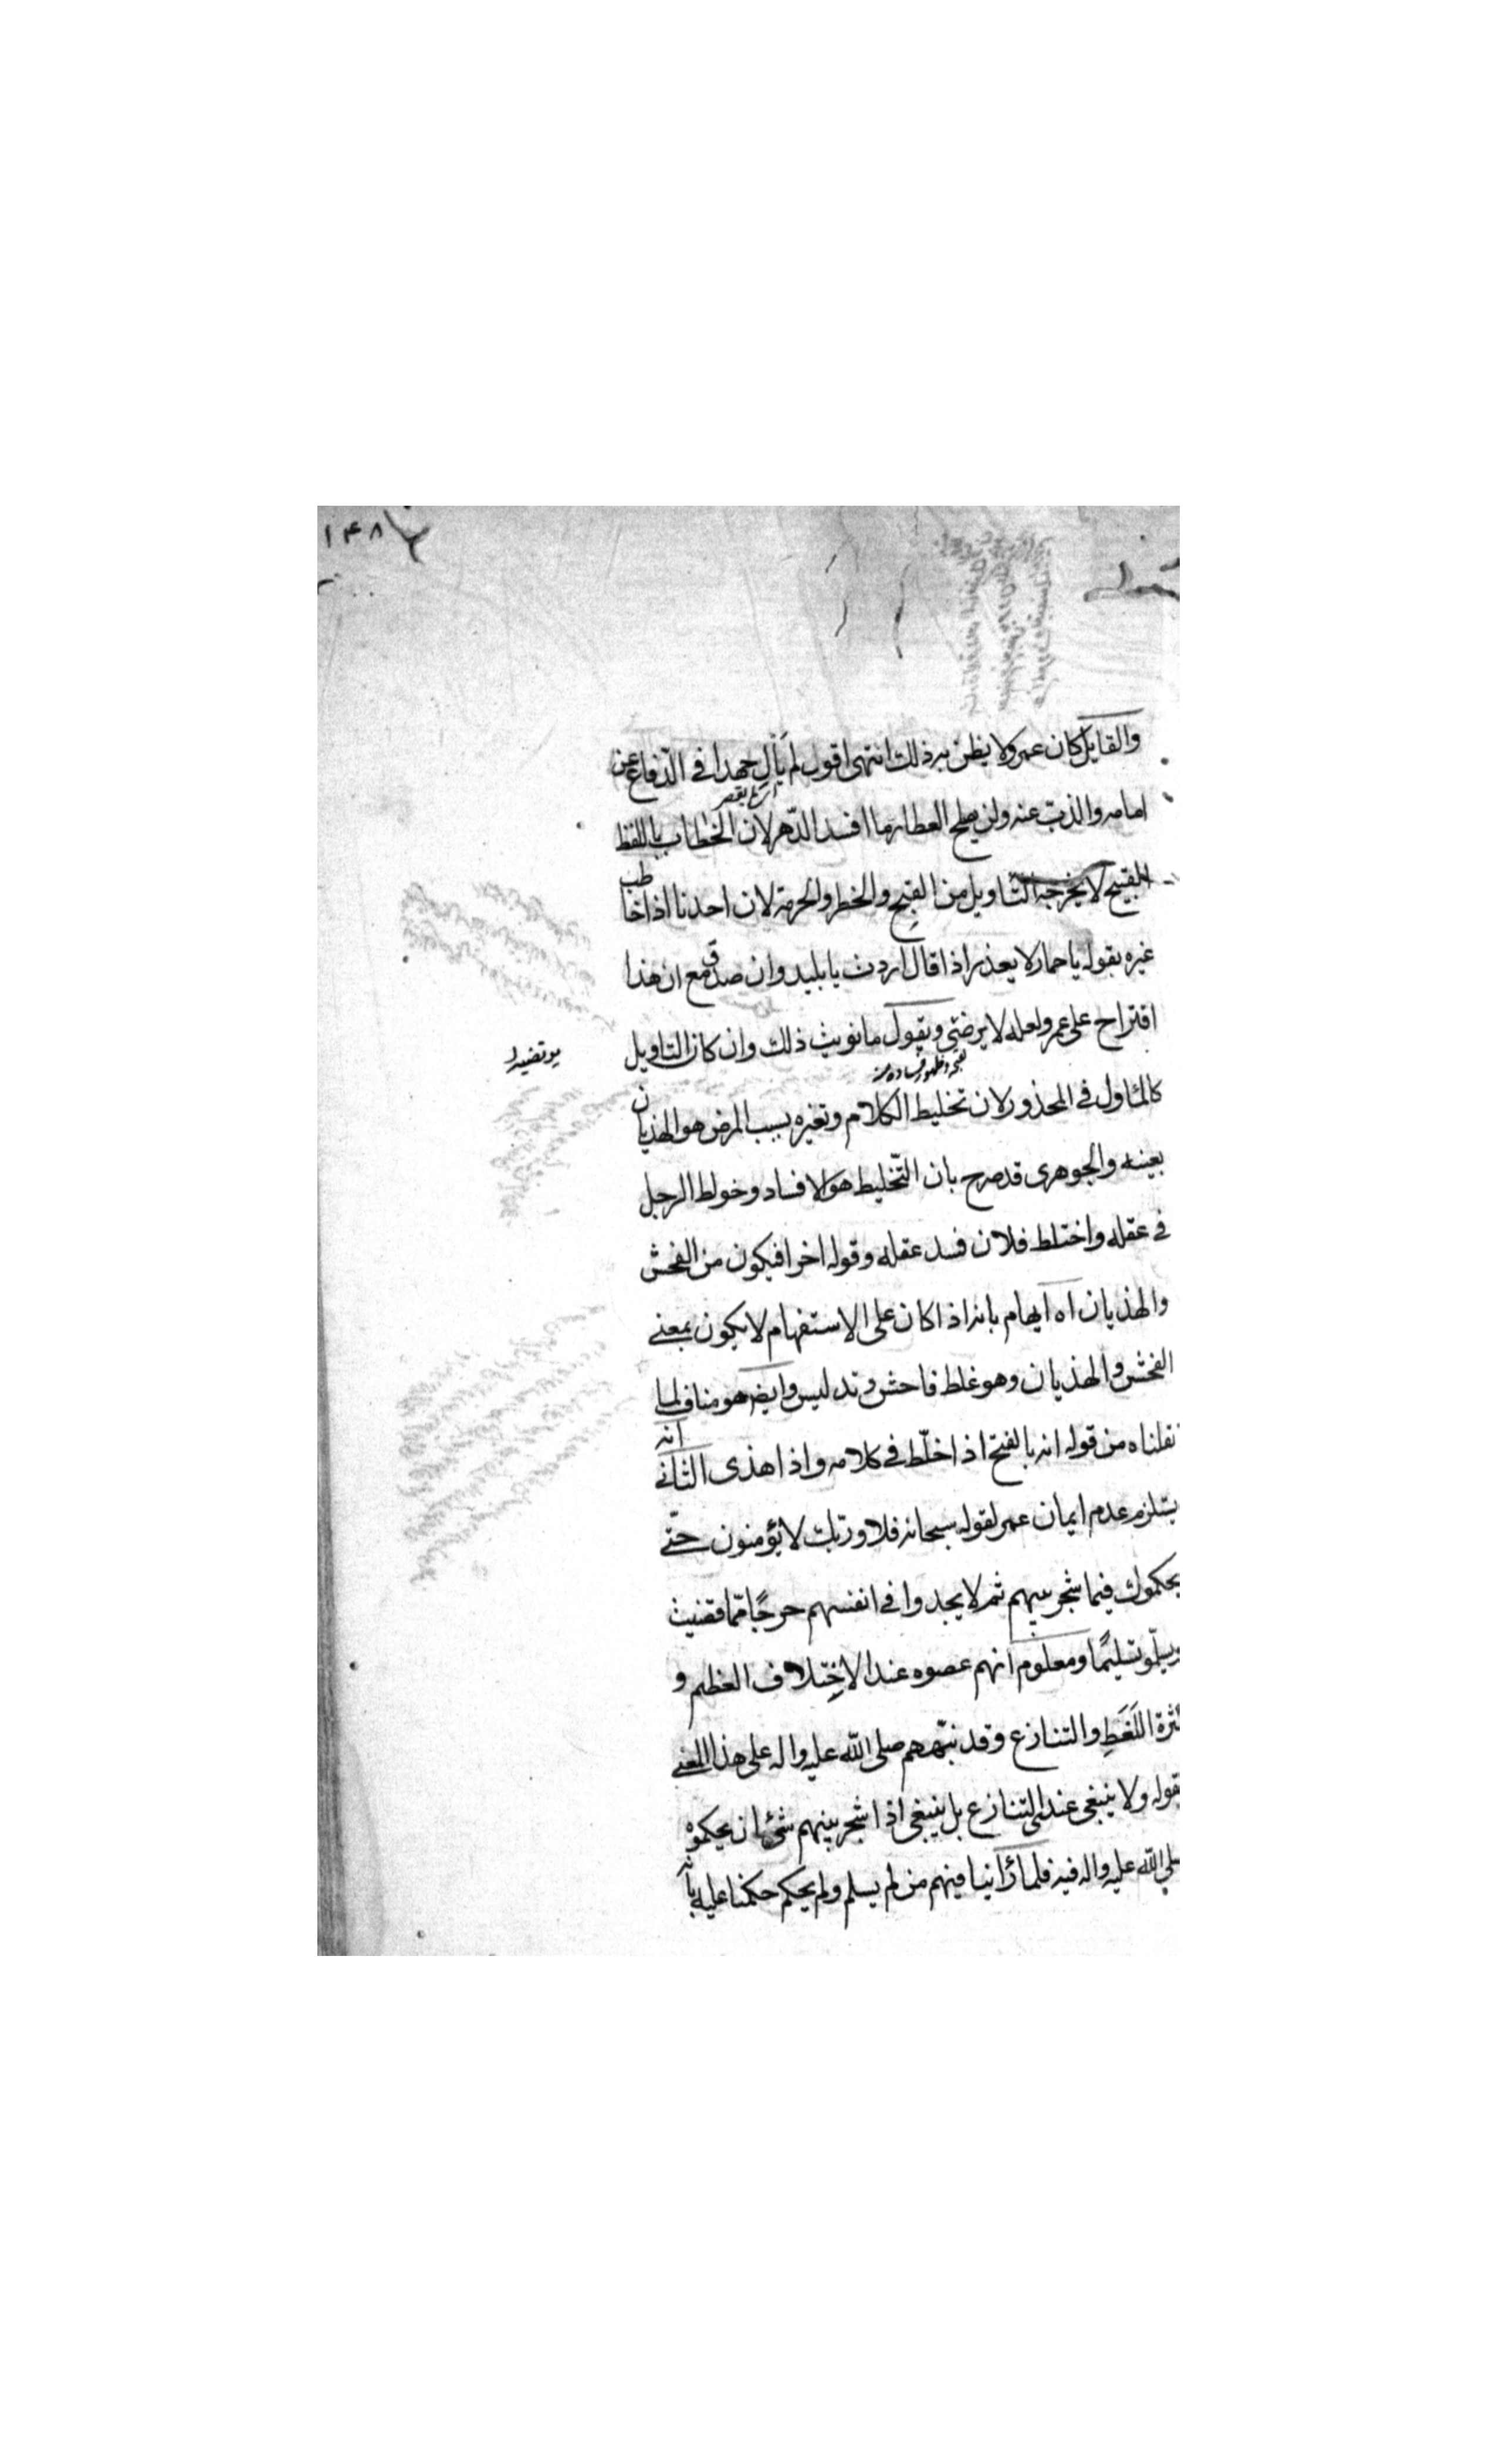 ١٤٨
والقايل كان عمر ولا يظن به ذلك انتهى اقول لم يأل جهدا في الدفاع عن
اي لم يقصر
امامه والذب عنه ولن يصلح العطار ما افسد الدهر لان الخطاب باللفظ
القبيح لا يخرجه التاويل من القبح والخطر والحرمة لان احدنا اذا خاطب
غيره بقوله يا حمار لا يعذر اذا قال اردت يا بليد وان صدق مع ان هذا
اقتراح على عمر ولعله لا يرضى ويقول ما نويت ذلك وان كان التاويل
كالمئاول في المحذور لان تخليط الكلام وتغيره بسبب المرض هو الهذيان
بعينه والجوهرى قد صرح بان التخليط هو الافساد وخولط الرجل
في عقله واختلط فلان فسد عقله وقوله اخرا فيكون من الفحش
والهذيان اه ايهام بانه اذا كان على الاستفهام لا يكون بمعنى
الفحش والهذيان وهو غلط فاحش وتدليس وايضا هو مناف لما
نقلناه من قوله انه بالفتح اذا خلط في كلامه واذا هذى الثاني انه
يستلزم عدم ايمان عمر لقوله سبحانه فلا وربك لا يؤمنون حتى
يحكموك فيما شجر بينهم ثم لا يجدوا في انفسهم حرجًا مما قضيت
ويسلموا تسليمًا ومعلوم انهم عصوه عند الاختلاف العظم و
كثرة اللغط والتنازع وقد نبههم صلى الله عليه واله على هذا المعنى
بقوله ولا ينبغي عندي التنازع بل ينبغي اذا شجر بينهم شئ ان يحكموه
صلى الله عليه واله فيه فلما رأينا فيهم من لم يسلم ولم يحكم حكمنا عليه بانه